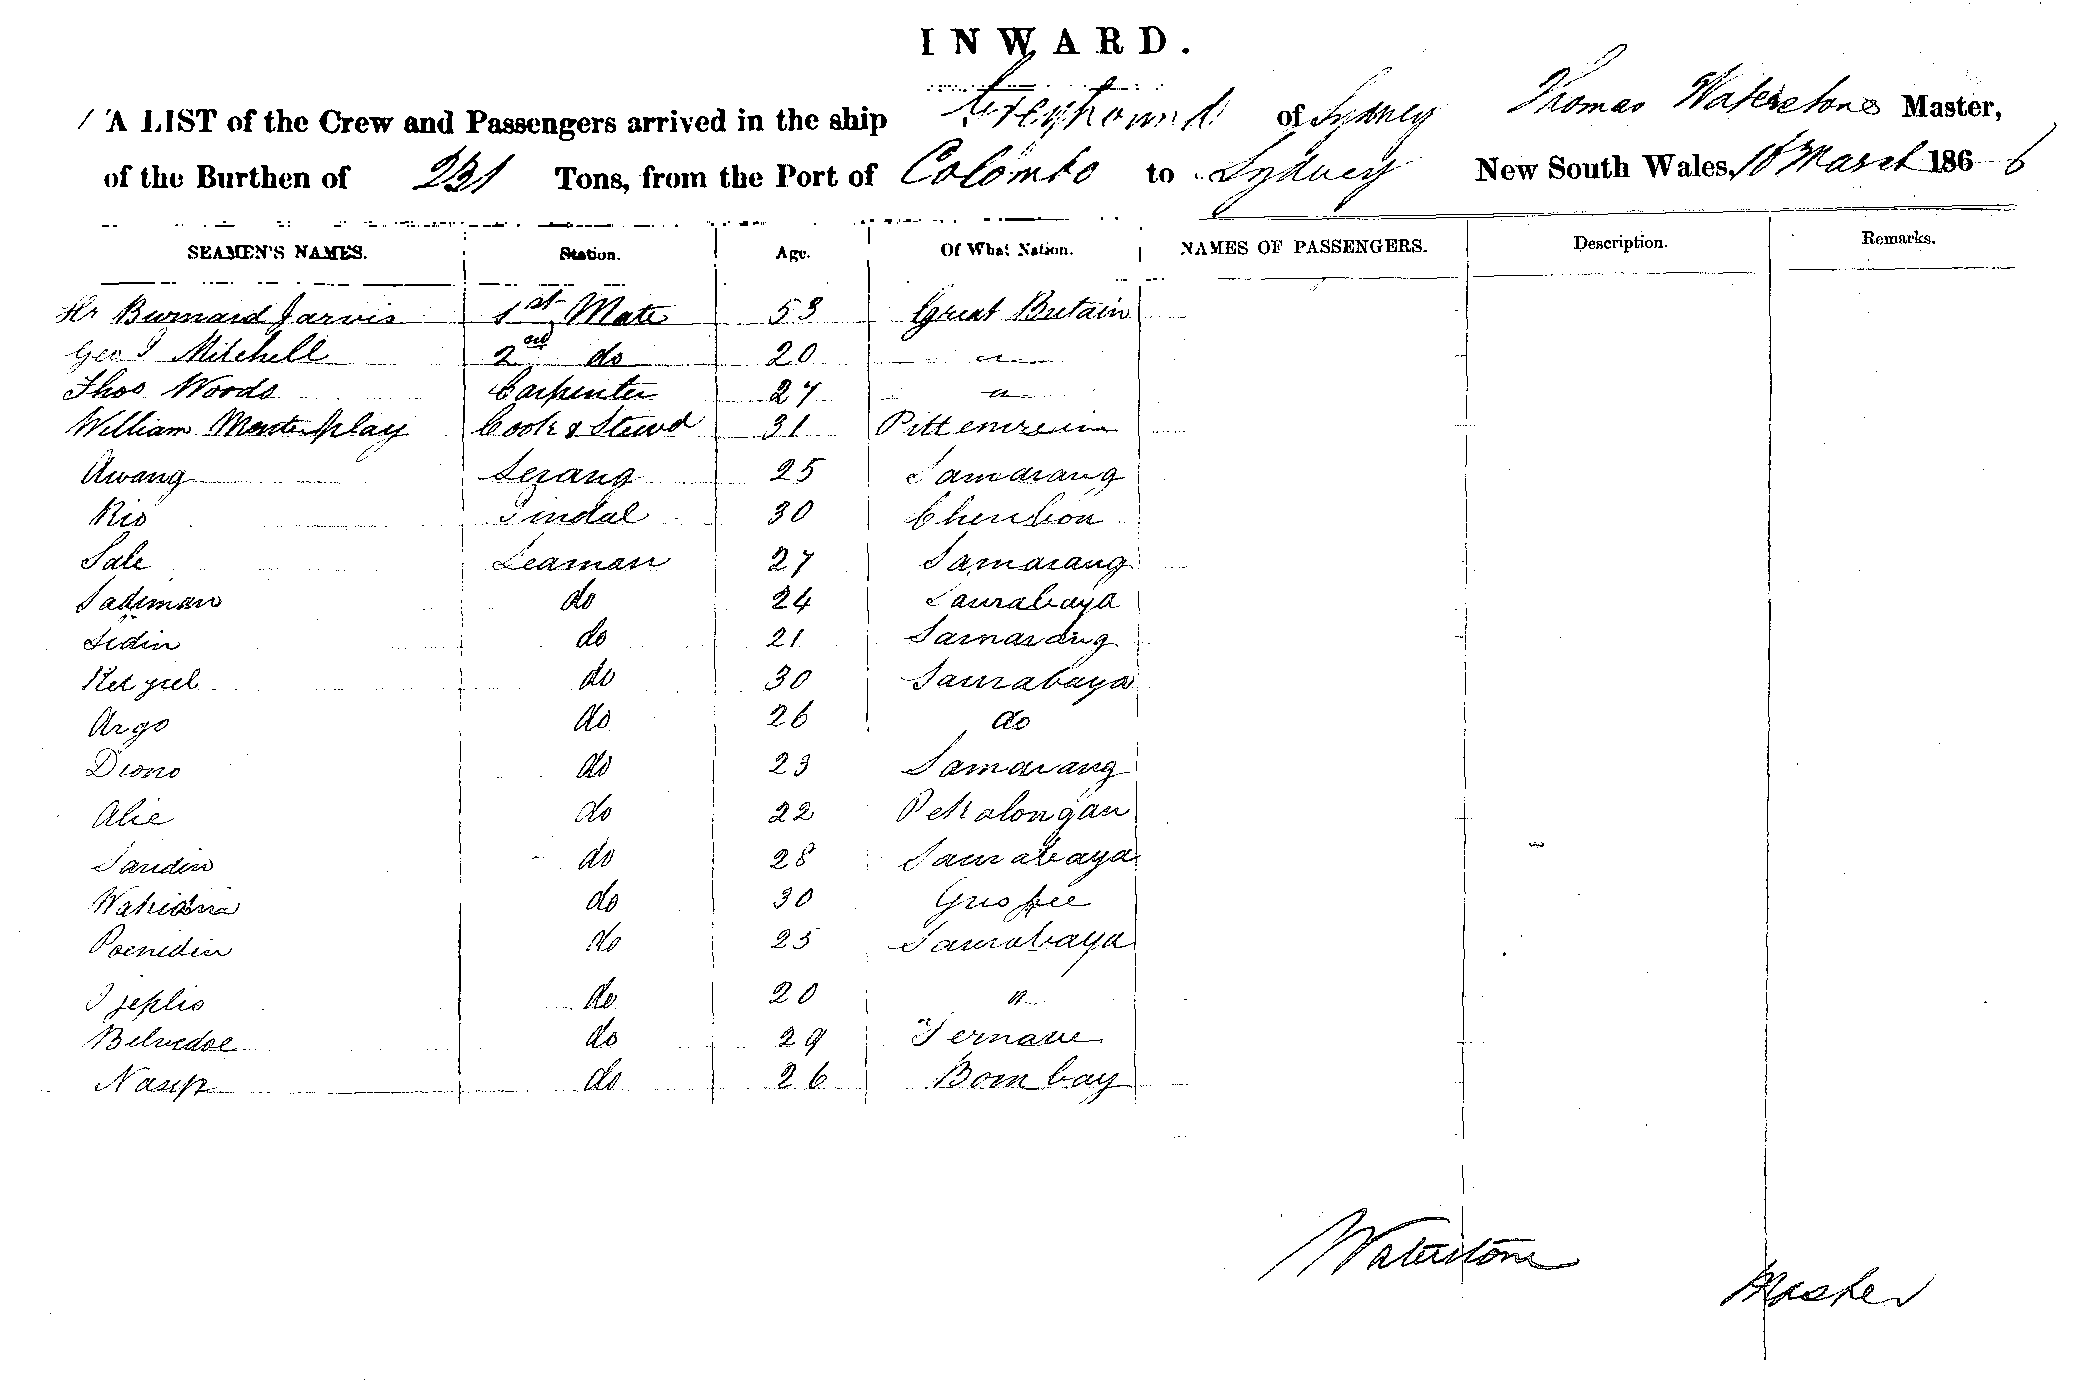 INWARD.
A LIST of the Crew and Passengers arrived in the ship Greyhound of Sydney Thomas Waterstone Master,
of the Burthen of 231 Tons, from the Port of Colombo to Sydney New South Wales, March 186 6
SEAMEN'S NAMES. Station. Age. Of What Nation. NAMES OF PASSENGERS. Description. Remarks.
Hy Burnard Jarvis 1st Mate 53 Great Britain
Geo J Mitchell 2nd do 20 "
Thos Woods Carpenter 27 "
William Cook & Stewd 31
Awang Serang 25 Samarang
Rio Tindal 30 Cheribon
Sale Seaman 27 Samarang
Sadiman do 24 Sourabaya
Sidin do 21 Samarang
do 30 Sourabaya
Argo do 26 do
Diono do 23 Samarang
Alie do 22 Pekalongan
Saridin do 28 Sourabaya
do 30
Poenidin do 25 Sourabaya
do 20 "
Belvedoe do 29
Nasip do 26 Bombay
Waterstone
Master